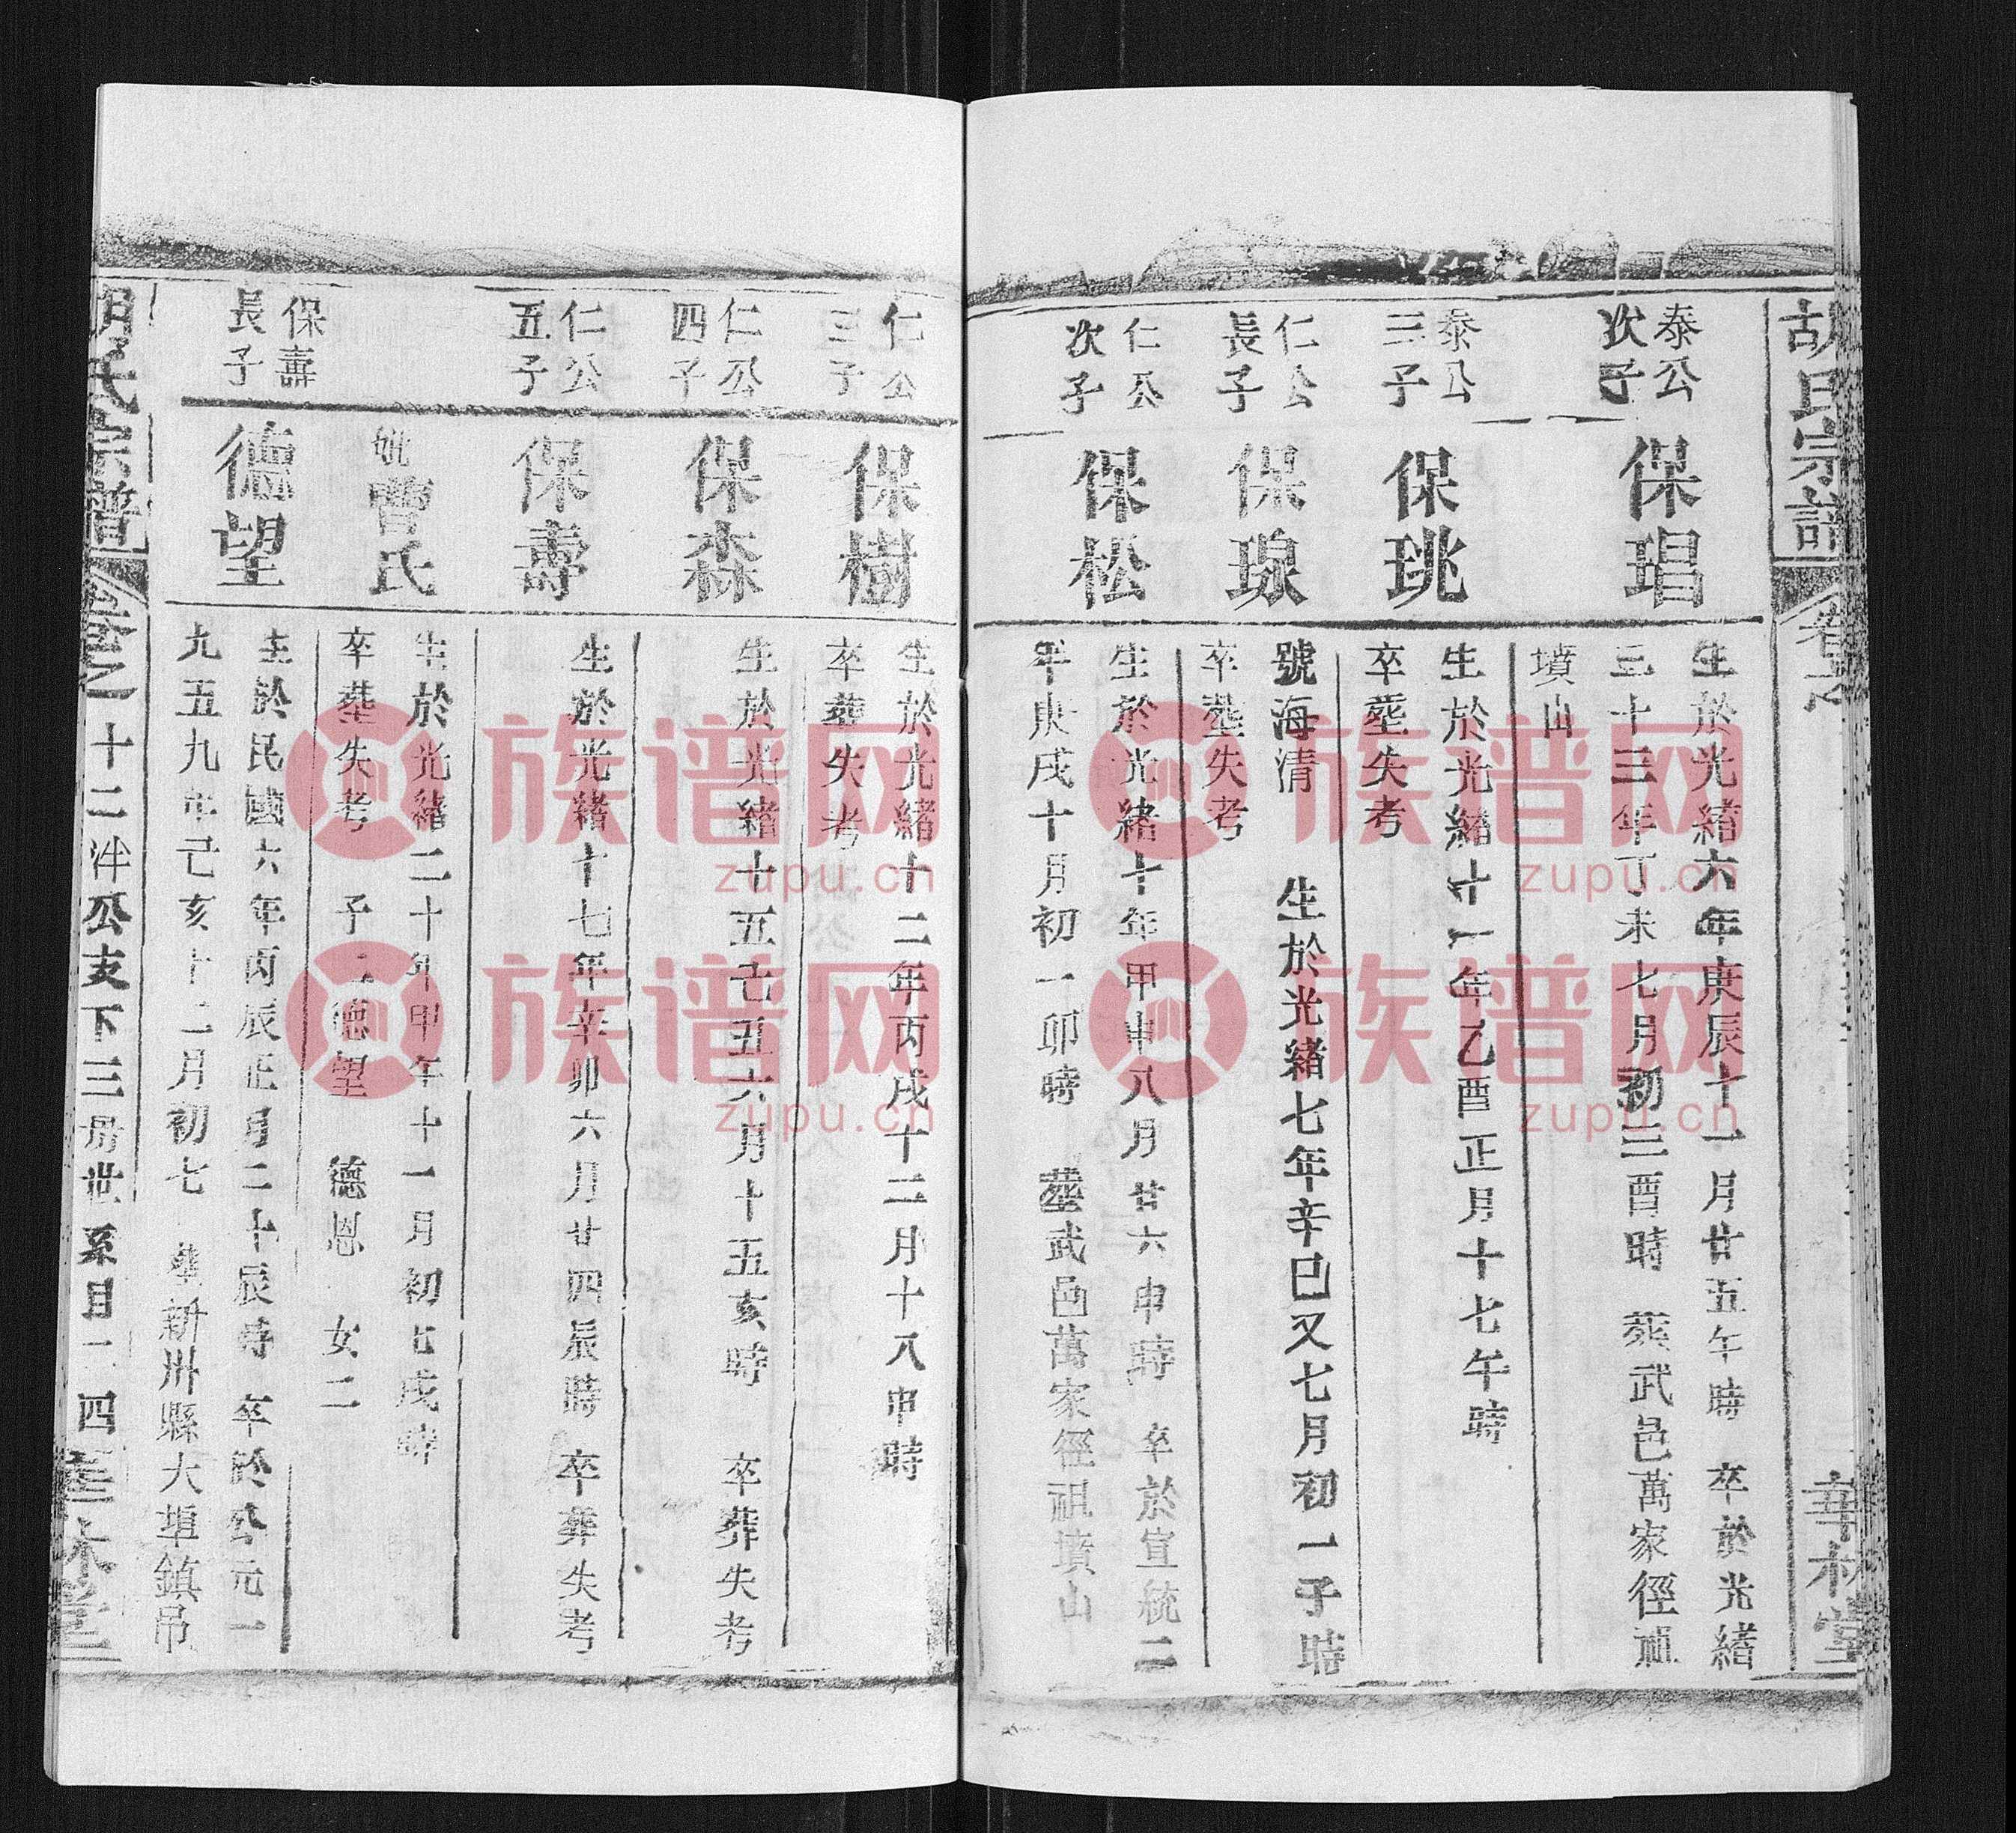 胡氏宗譜
卷之
華林堂
泰公
次子
保琩
生於光緒六年庚辰十一月廿五午時 卒於光緒
三十三年丁未七月初三酉時 葬武邑萬家徑祖
墳山
泰公
三子
保珧
生於光緒十一年乙酉正月十七午時
卒塟失考
仁公
長子
保
號海清 生於光緒七年辛巳又七月初一子時
卒塟失考
仁公
次子
保松
生於光緒十年甲申八月廿六申時 卒於宣統二
年庚戌十月初一卯時 塟武邑萬家徑祖墳山
仁公
三子
保樹
生於光緒十二年丙戌十二月十八申時
卒葬失考
仁公
四子
保森
生於光緒十五己丑六月十五亥時 卒葬失考
仁公
五子
保壽
生於光緒十七年辛卯六月廿四辰時 卒葬失考
妣曹氏
生於光緒二十年甲午十一月初七戌時
卒塟失考 子二德望 德恩 女二
保壽
長子
德望
生於民國六年丙辰正月二十辰時 卒於公元一
九五九年己亥十二月初七 塟新洲縣大埠鎮吊
胡氏宗譜
卷之二十二泮公支下三房世系目一 四
華林堂
族谱网
zupu.cn
族谱网
zupu.cn
族谱网
zupu.cn
族谱网
zupu.cn